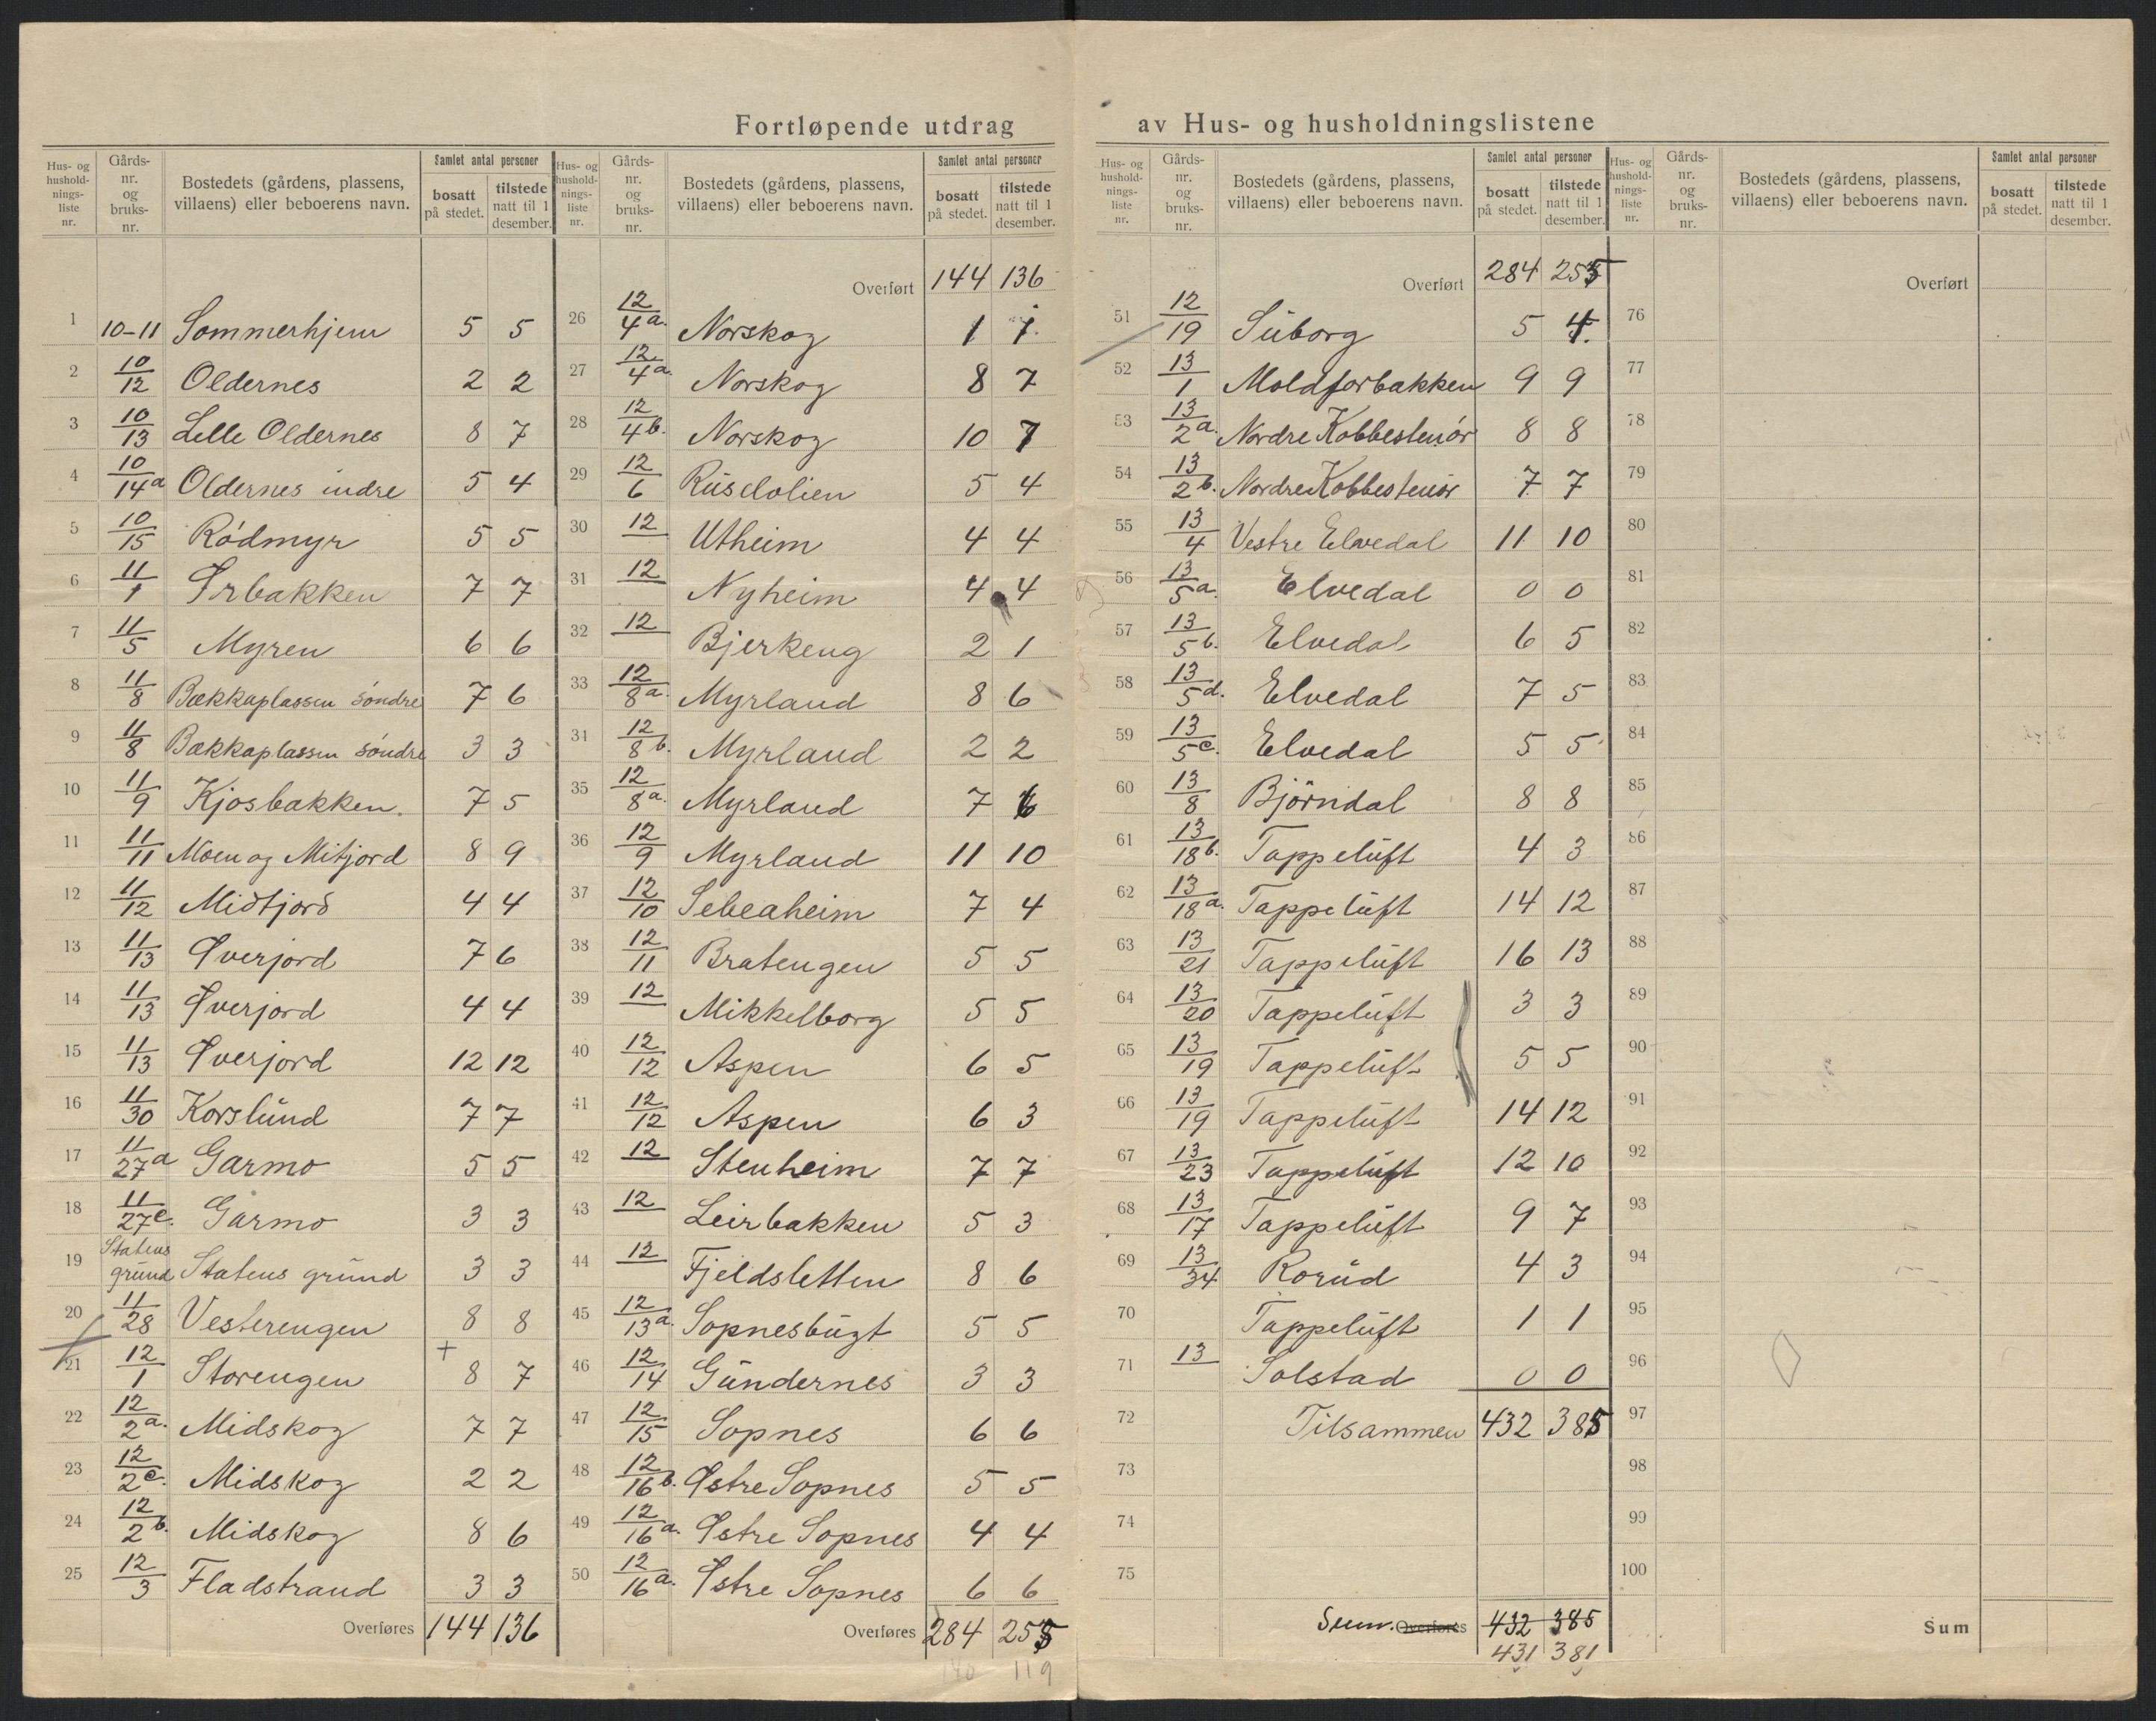 Fortløpende utdrag av Hus- og husholdningslistene
Hus- og husholdnings-liste nr. Gårds-nr. og bruks-nr. Bostedets (gårdens, plassens, villaens) eller beboerens navn. Samlet antal personer bosatt på stedet. tilstede natt til 1 desember.
1 10-11 Sommerhjem 5 5
2 10/12 Oldernes 2 2
3 10/13 Lille Oldernes 8 7
4 10/14 a Oldernes indre 5 4
5 10/15 Rödmyr 5 5
6 11/1 Ørbakken 7 7
7 11/5 Myren 6 6
8 11/8 Bækkaplassen söndre 7 6
9 11/8 Bækkaplassen söndre 3 3
10 11/9 Kjosbakken. 7 5
11 11/11 Moen og Mitjord 8 9
12 11/12 Midtjord 4 4
13 11/13 Øverjord 7 6
14 11/13 Øverjord 4 4
15 11/13 Øverjord 12 12
16 11/30 Korslund 7 7
17 11/27 a Garmo 5 5
18 11/27 c. Garmo 3 3
19 Statens grund Statens grund 3 3
20 11/28 Vesterengen 8 8
21 12/1 Storengen + 8 7
22 12/2 a. Midskog 7 7
23 12/2 c. Midskog 2 2
24 12/2 b. Midskog 8 6
25 12/3 Fladstrand 3 3
Overføres 144 136
Hus- og husholdnings-liste nr. Gårds-nr. og bruks-nr. Bostedets (gårdens, plassens, villaens) eller beboerens navn. Samlet antal personer bosatt på stedet. tilstede natt til 1 desember.
Overført 144 136
26 12/4 a. Norskog 1 1.
27 12/4 a. Norskog 8 7
28 12/4 b. Norskog 10 7
29 12/6 Rusdolien 5 4
30 12 Utheim 4 4
31 12 Nyheim 4 4
32 12 Bjerkeng 2 1
33 12/8 a. Myrland 8 6
34 12/8 b. Myrland 2 2
35 12/8 a. Myrland 7 6
36 12/9 Myrland 11 10
37 12/10 Sebeaheim 7 4
38 12/11 Bratengen 5 5
39 12 Mikkelborg 5 5
40 12/12 Aspen 6 5
41 12/12 Aspen 6 3
42 12 Stenheim 7 7
43 12 Leirbakken 5 3
44 12 Fjeldsletten 8 6
45 12/13 a. Sopnesbugt 5 5
46 12/14 Gundernes 3 3
47 12/15 Sopnes 6 6
48 12/16 b. Østre Sopnes 5 5
49 12/16 a. Østre Sopnes 4 4
50 12/16 a. Østre Sopnes 6 6
Overføres 284 255
140 119
Hus- og husholdnings-liste nr. Gårds-nr. og bruks-nr. Bostedets (gårdens, plassens, villaens) eller beboerens navn. Samlet antal personer bosatt på stedet. tilstede natt til 1 desember.
Overført 284 255
51 12/19 Suborg 5 4.
52 13/1 Moldforbakken 9 9
53 13/2 a. Nordre Kobbestenör 8 8
54 13/2 b. Nordre Kobbestenör 7 7
55 13/4 Vestre Elvedal 11 10
56 13/5 a. Elvedal 0 0
57 13/5 b. Elvedal 6 5
58 13/5 d. Elvedal 7 5
59 13/5 c. Elvedal 5 5
60 13/8 Björndal 8 8
61 13/18 b. Tappeluft 4 3
62 13/18 a. Tappeluft 14 12
63 13/21 Tappeluft 16 13
64 13/20 Tappeluft 3 3
65 13/19 Tappeluft 5 5
66 13/19 Tappeluft 14 12
67 13/23 Tappeluft 12 10
68 13/17 Tappeluft 9 7
69 13/34 Rorud 4 3
70 Tappeluft 1 1
71 13 Solstad 0 0
72 Tilsammen 432 385
73
74
75
Sum. Overføres 432 385
431 381
Hus- og husholdnings-liste nr. Gårds-nr. og bruks-nr. Bostedets (gårdens, plassens, villaens) eller beboerens navn. Samlet antal personer bosatt på stedet. tilstede natt til 1 desember.
Overført
76
77
78
79
80
81
82
83
84
85
86
87
88
89
90
91
92
93
94
95
96
97
98
99
100
Sum